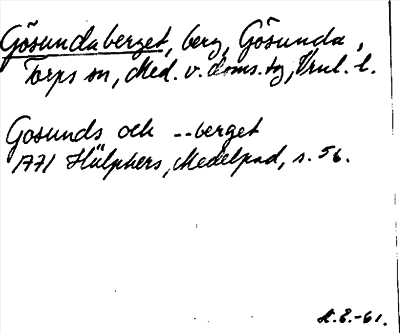 Gösundaberget, berg, Gösunda,
Torps sn, Med. v. doms. tg, Vnl. l.
Gosunds och --berget
1771 Hülphers, Medelpad, s. 56.
H.E.-61.